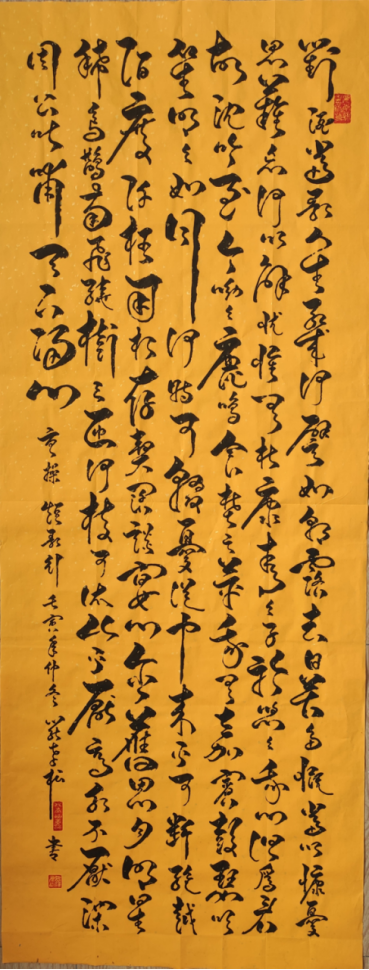 對酒當歌人生幾何譬如朝露去日苦多慨當以慷憂
思難忘何以解憂惟有杜康青々子衿悠々我心但為君
故沈吟至今呦々鹿鳴食野之苹我有嘉賓鼓瑟吹
笙明々如月何時可掇憂從中來不可斷絕越
陌度阡枉用相存契闊談宴心念舊恩月明星
稀烏鵲南飛繞樹三匝何枝可依山不厭高水不厭深
周公吐哺天下歸心 曹操短歌行 壬寅年仲冬 松書